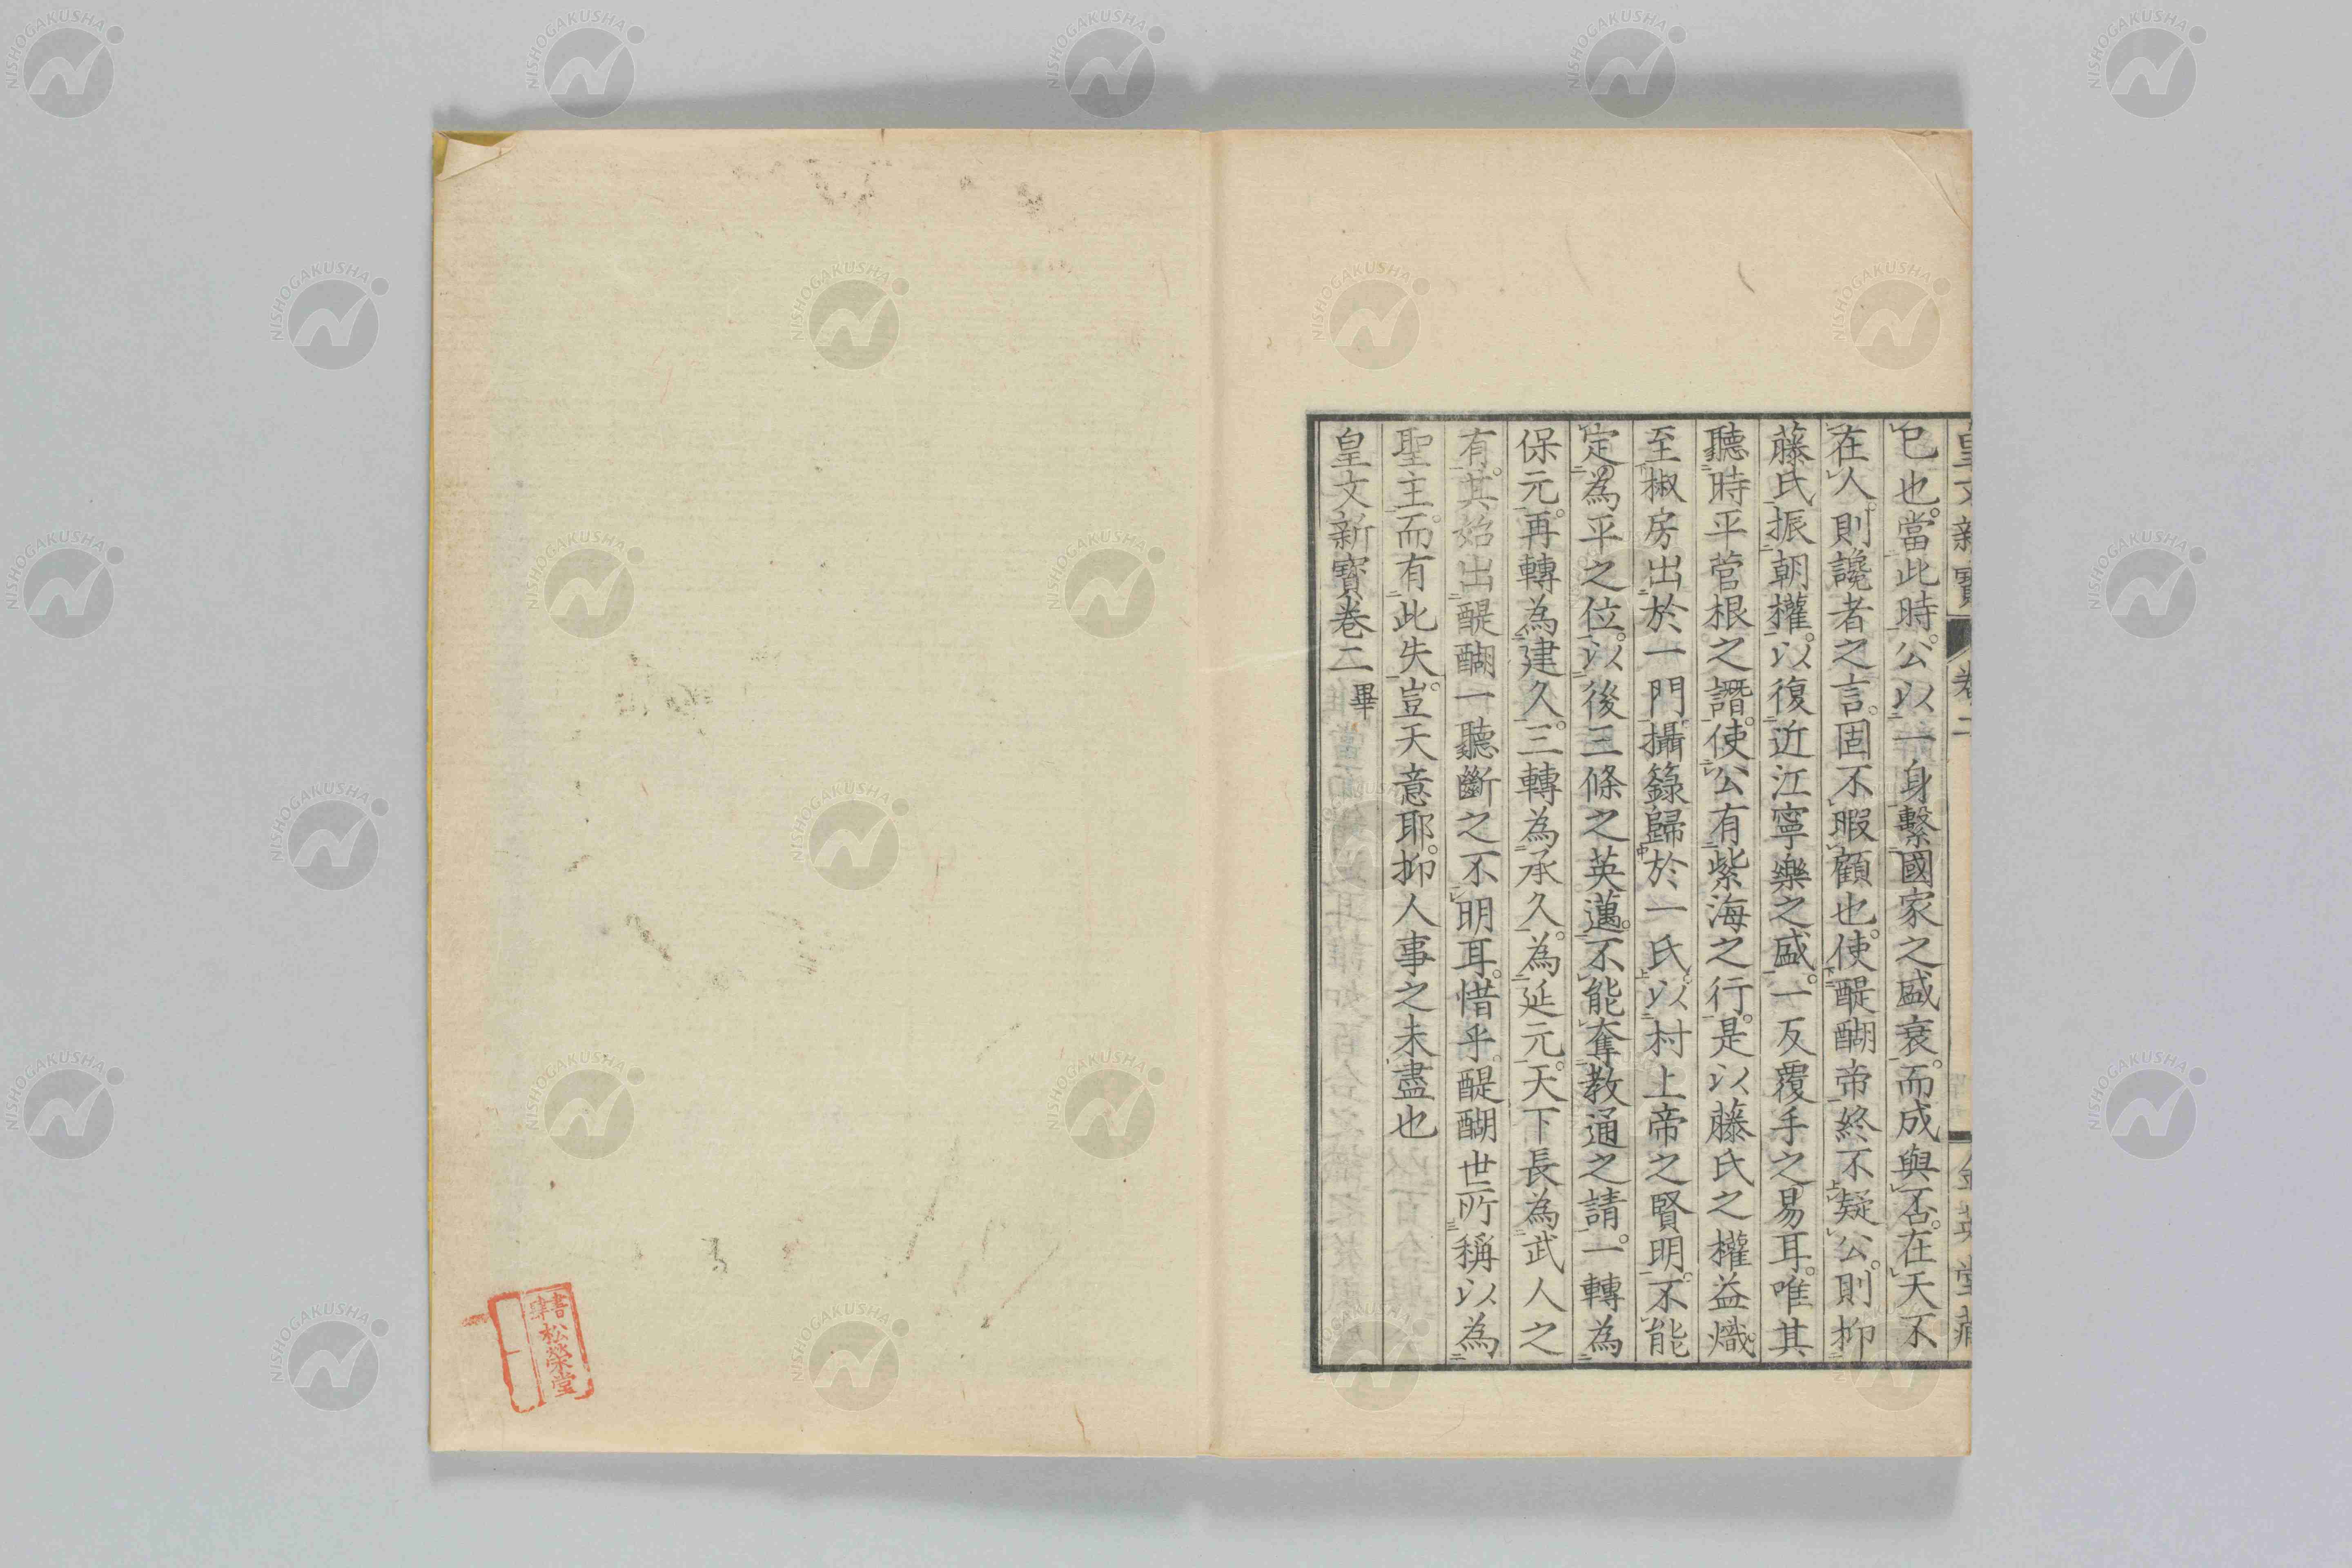 皇文新寶 卷二
已也。當此時。公以一身繫國家之盛衰。而成與否。在天不
在人。則讒者之言。固不暇顧也。使醍醐帝終不疑公。則抑
藤氏振朝權。以復近江寧樂之盛。一反覆手之易耳。唯其
聽時平菅根之譖。使公有紫海之行。是以藤氏之權益熾。
至椒房出於一門。攝籙歸於一氏。以村上帝之賢明。不能
定為平之位。以後三條之英邁。不能奪教通之請。一轉為
保元。再轉為建久。三轉為承久。為延元。天下長為武人之
有。其始出醍醐一聽斷之不明耳。惜乎。醍醐世所稱以為
聖主。而有此失。豈天意耶。抑人事之未盡也
皇文新寶卷二 畢
松榮堂
NISHOGAKUSHA